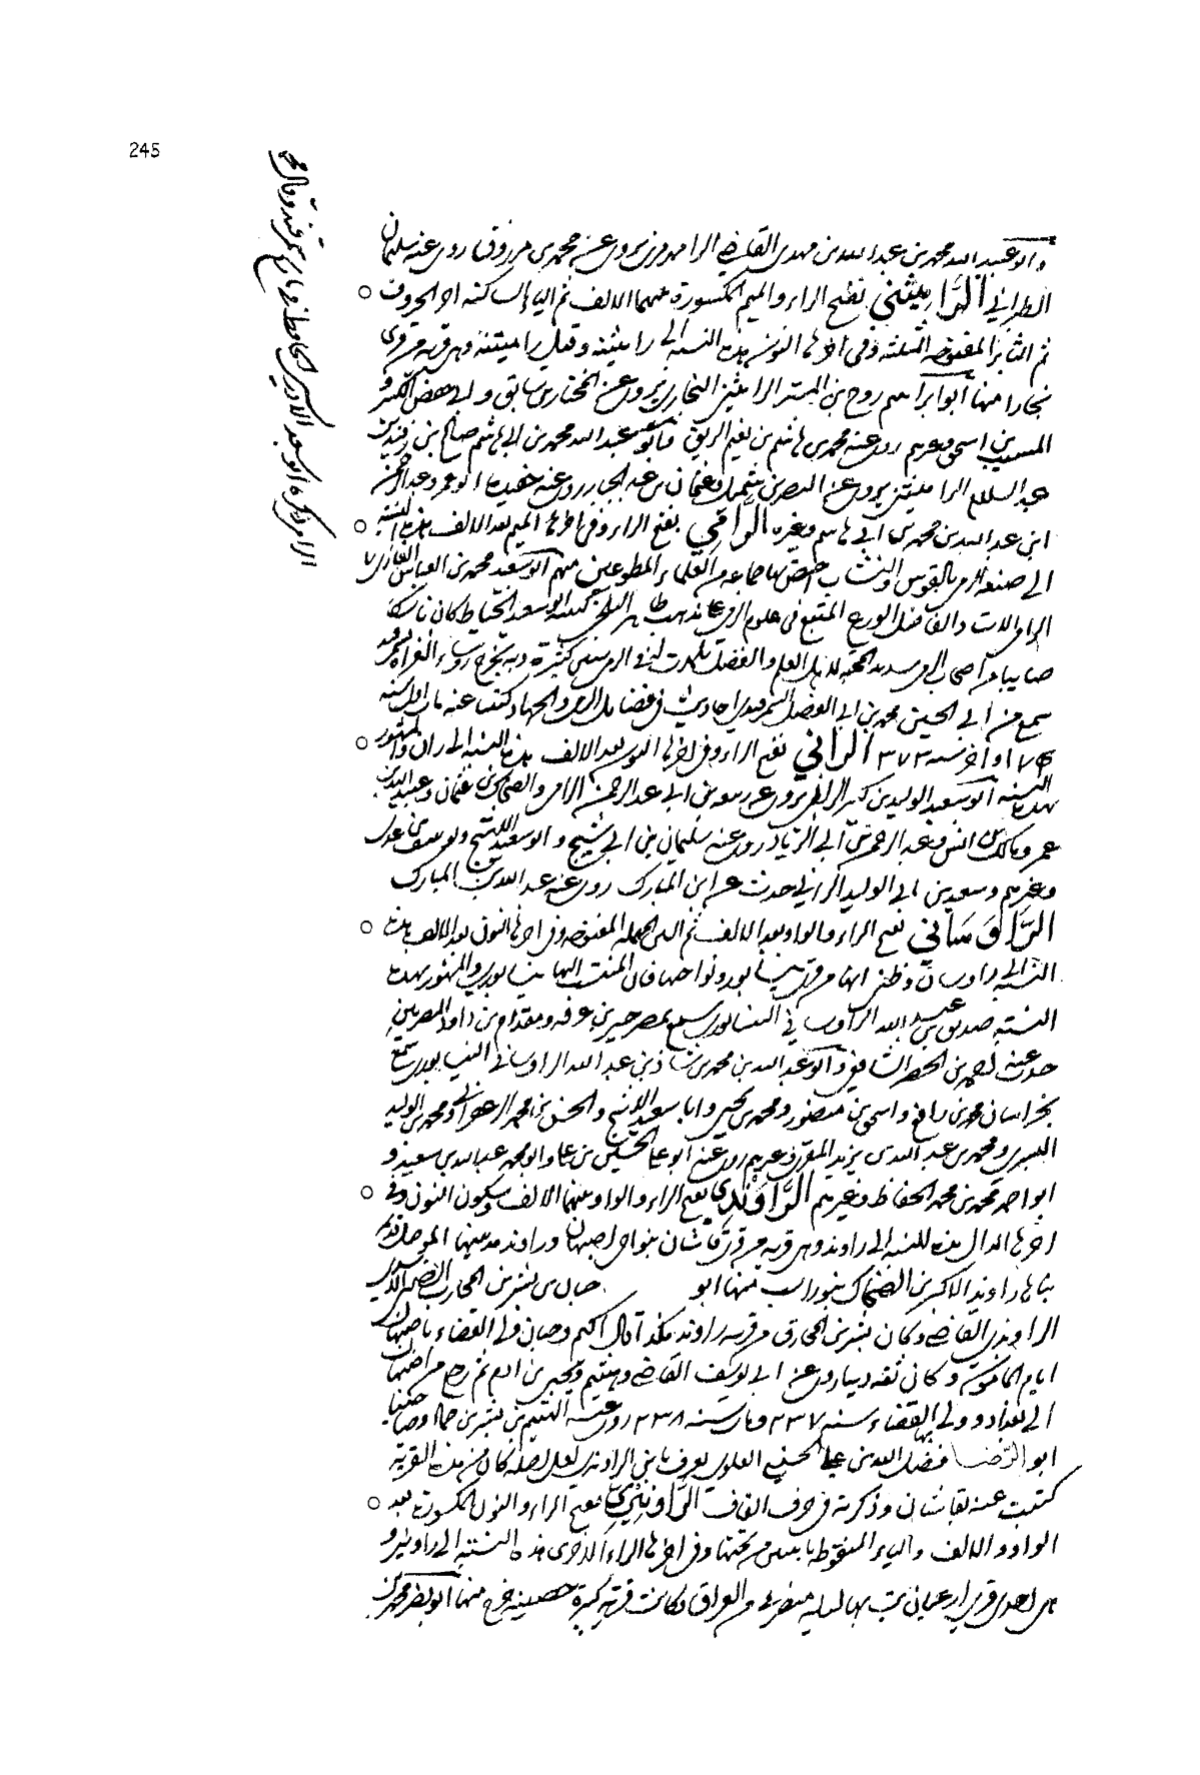 245
وابو عبد الله محمد بن عبد الله بن مهدي القاضي الرامهرمزي يروي عن محمد بن مرزوق روى عنه سليمان
الطبراني الرَّامِيثَني بفتح الراء والميم المكسورة بينهما الالف ثم الياء الساكنة اخر الحروف
ثم الثاء المفتوحة المثلثة وفي اخرها النون هذه النسبة الى راميثنه وقيل راميتنه وهي قرية من قرى
بخارا منها ابو ابرهيم روح بن المستنير الراميثني البخاري يروي عن المختار بن سابق وابي حفص الكبير و
المسيب بن اسحق وغيرهم روى عنه محمد بن هاشم بن نعيم الزمن وابو عبد الله محمد بن ابي هاشم صالح بن
عبد السلم الراميثني يروي عن النضر بن شميل وعثمان بن عبد الجبار روى عنه حفيده ابو عمرو عبد الرحمن
ابن عبد الله بن محمد بن ابي هاشم وغيره الرَّامِي بفتح الراء وفي اخرها الميم بعد الالف هذه النسبة
الى صنعة الرمي بالقوس والنشاب اختص بها جماعة من العلماء المطوعين منهم ابو سعد محمد بن العباس الغازي
سمع من ابي الحسين محمد بن ابي الفضل السمرقندي احاديث في فضايل الرمي والجهاد كتبنا عنه مات اول سنة
او اخر سنه ٣٧٣ الرَّاني بفتح الراء وفي اخرها النون بعد الالف هذه النسبة الى ران والمشهور
بهذه النسبة ابو سعيد الوليد بن كثير الراني يروي عن ربيعة بن ابي عبد الرحمن الراي والضحاك بن عثمان وعبيد الله بن
عمر ومالك بن انس وعبد الرحمن بن ابي الزناد روى عنه سليمان بن ابي شيخ وابو سعيد الاشج ويوسف بن عدي
وغيرهم وسعيد بن ابي الوليد الراني حدث عن ابن المبارك روى عنه عبد الله بن المبارك
الرَّاوَسَاني بفتح الراء والواو بعد الالف ثم السين المهملة المفتوحة وفي اخرها النون بعد الالف هذه
النسبة الى راوسان وظني انها من قرى نيسابور ونواحيها فان المنتسب اليها نيسابوري والمشهور بهذه
النسبة صديق بن عبد الله الراوساني النيسابوري سمع بمصر حسين بن عرفه ومقدام بن داود المصريين
حدث عنه احمد بن الخضر الشافعي وابو عبد الله بن محمد بن شاذ بن عبد الله الراوساني النيسابوري سمع
بخراسان محمد بن رافع واسحق بن منصور ومحمد بن يحيى وابا سعيد الاشج والحسن بن محمد الزعفراني ومحمد بن الوليد
البسري ومحمد بن عبد الله بن يزيد المقري وغيرهم روى عنه ابو علي الحسين بن علي وابو محمد عبد الله بن سعيد و
ابو احمد محمد بن محمد الحفاظ وغيرهم الرَّاوَنْدِي بفتح الراء والواو بينهما الالف وسكون النون وفي
اخرها الدال هذه النسبة الى راوند وهي قرية من قرى قاشان بنواحي اصبهان وراوند مدينة بالموصل قديمة
بناها راوند الاكبر بن الضحاك بيوراسب منها ابو حيان بن بشر بن المخارق الضبي الاسدي
الراوندي القاضي وكان بشر بن المخارق من قرية راوند هكذا قال الحكم وحيان ولي القضاء باصبهان
ايام المامون وكان ثقة دينا روى عن ابي يوسف القاضي وهشيم ويحيى بن ادم ثم رجع من اصبهان
الى بغداد وولي بها القضاء سنه ٢٣٧ ومات سنه ٢٣٨ روى عنه الهيثم بن بشر بن حماد وصاحبنا
ابو الرضا فضل الله بن علي الحسني العلوي يعرف بابن الراوندي لعل اصله كان من هذه القرية
كتبت عنه بقاشان وذكرته في حرف القاف الرَّاونيري بفتح الراء والنون المكسورة بعد
الواو والالف والياء المنقوطة باثنتين من تحتها وفي اخرها الراء الاخرى هذه النسبة الى راونير و
هي احدى قرى ارغيان بت بها ليلة منصرفي من العراق وكانت قرية كبيرة حصينة خرج منها ابو نصر محمد بن
الرامي ذكره ابو سعد الادريسي الحافظ في تاريخ سمرقند وقال